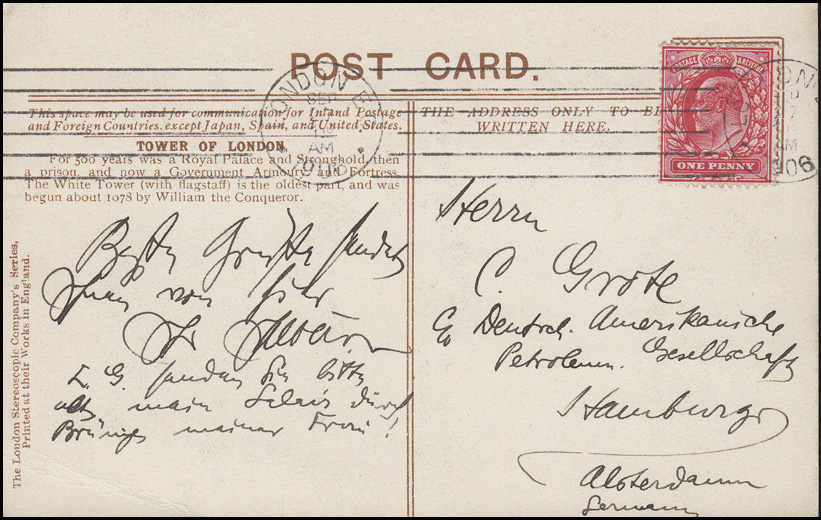 POST CARD.
This space may be used for communication for Inland Postage
and Foreign Countries, except Japan, Spain, and United States.
TOWER OF LONDON.
For 500 years was a Royal Palace and Stronghold, then
a prison, and now a Government Armoury and Fortress.
The White Tower (with flagstaff) is the oldest part, and was
begun about 1078 by William the Conqueror.
Beste Grüße sendet
Ihnen von hier
Ihr
z. G. senden Sie bitte
mein durch
meiner Frau!
The London Stereoscopic Company's Series,
Printed at their Works in England.
THE ADDRESS ONLY TO BE
WRITTEN HERE.
POSTAGE & REVENUE
ONE PENNY
LONDON E
SEP
AM
906
Herrn
C. Grote
Co Deutsch. Amerikanische
Petroleum. Gesellschaft
Hamburg
Alsterdamm
Germany